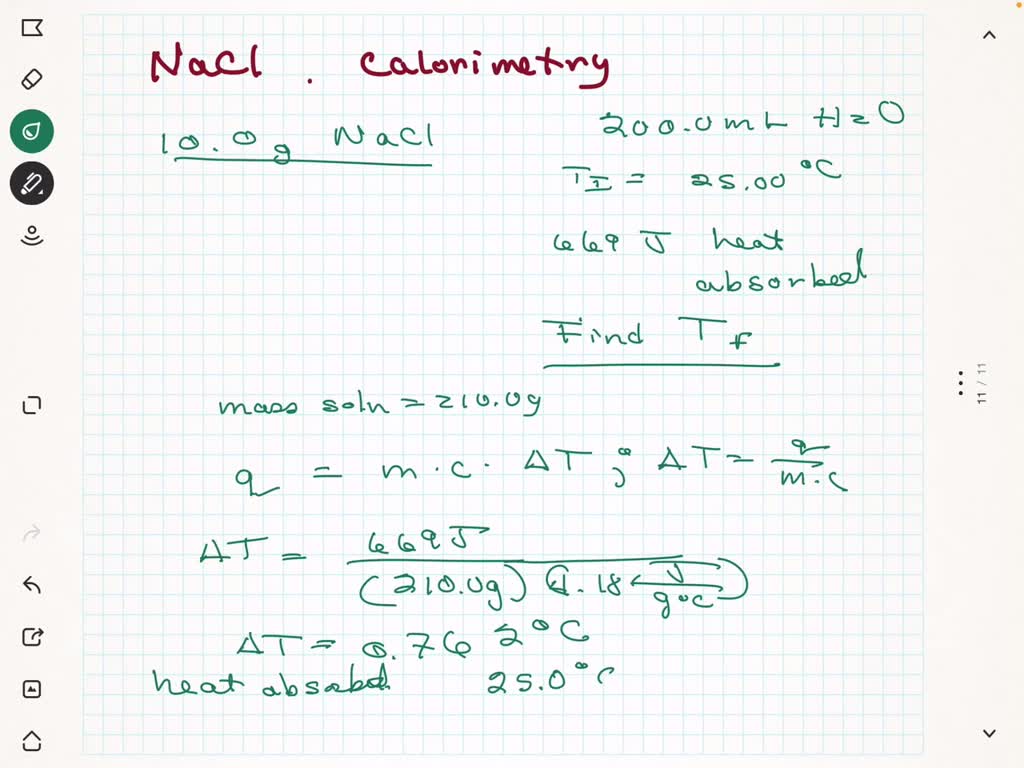 NaCl . Calorimetry
10.0g NaCl
200.0mL H2O
TI = 25.00 °C
669 J heat
absorbed
Find Tf
mass soln = 210.0g
q = m.c. ΔT ; ΔT = q/m.c
ΔT = 669J/(210.0g)(4.18 J/g°C)
ΔT = 0.762°C
heat absobd 25.0°C
11 / 11